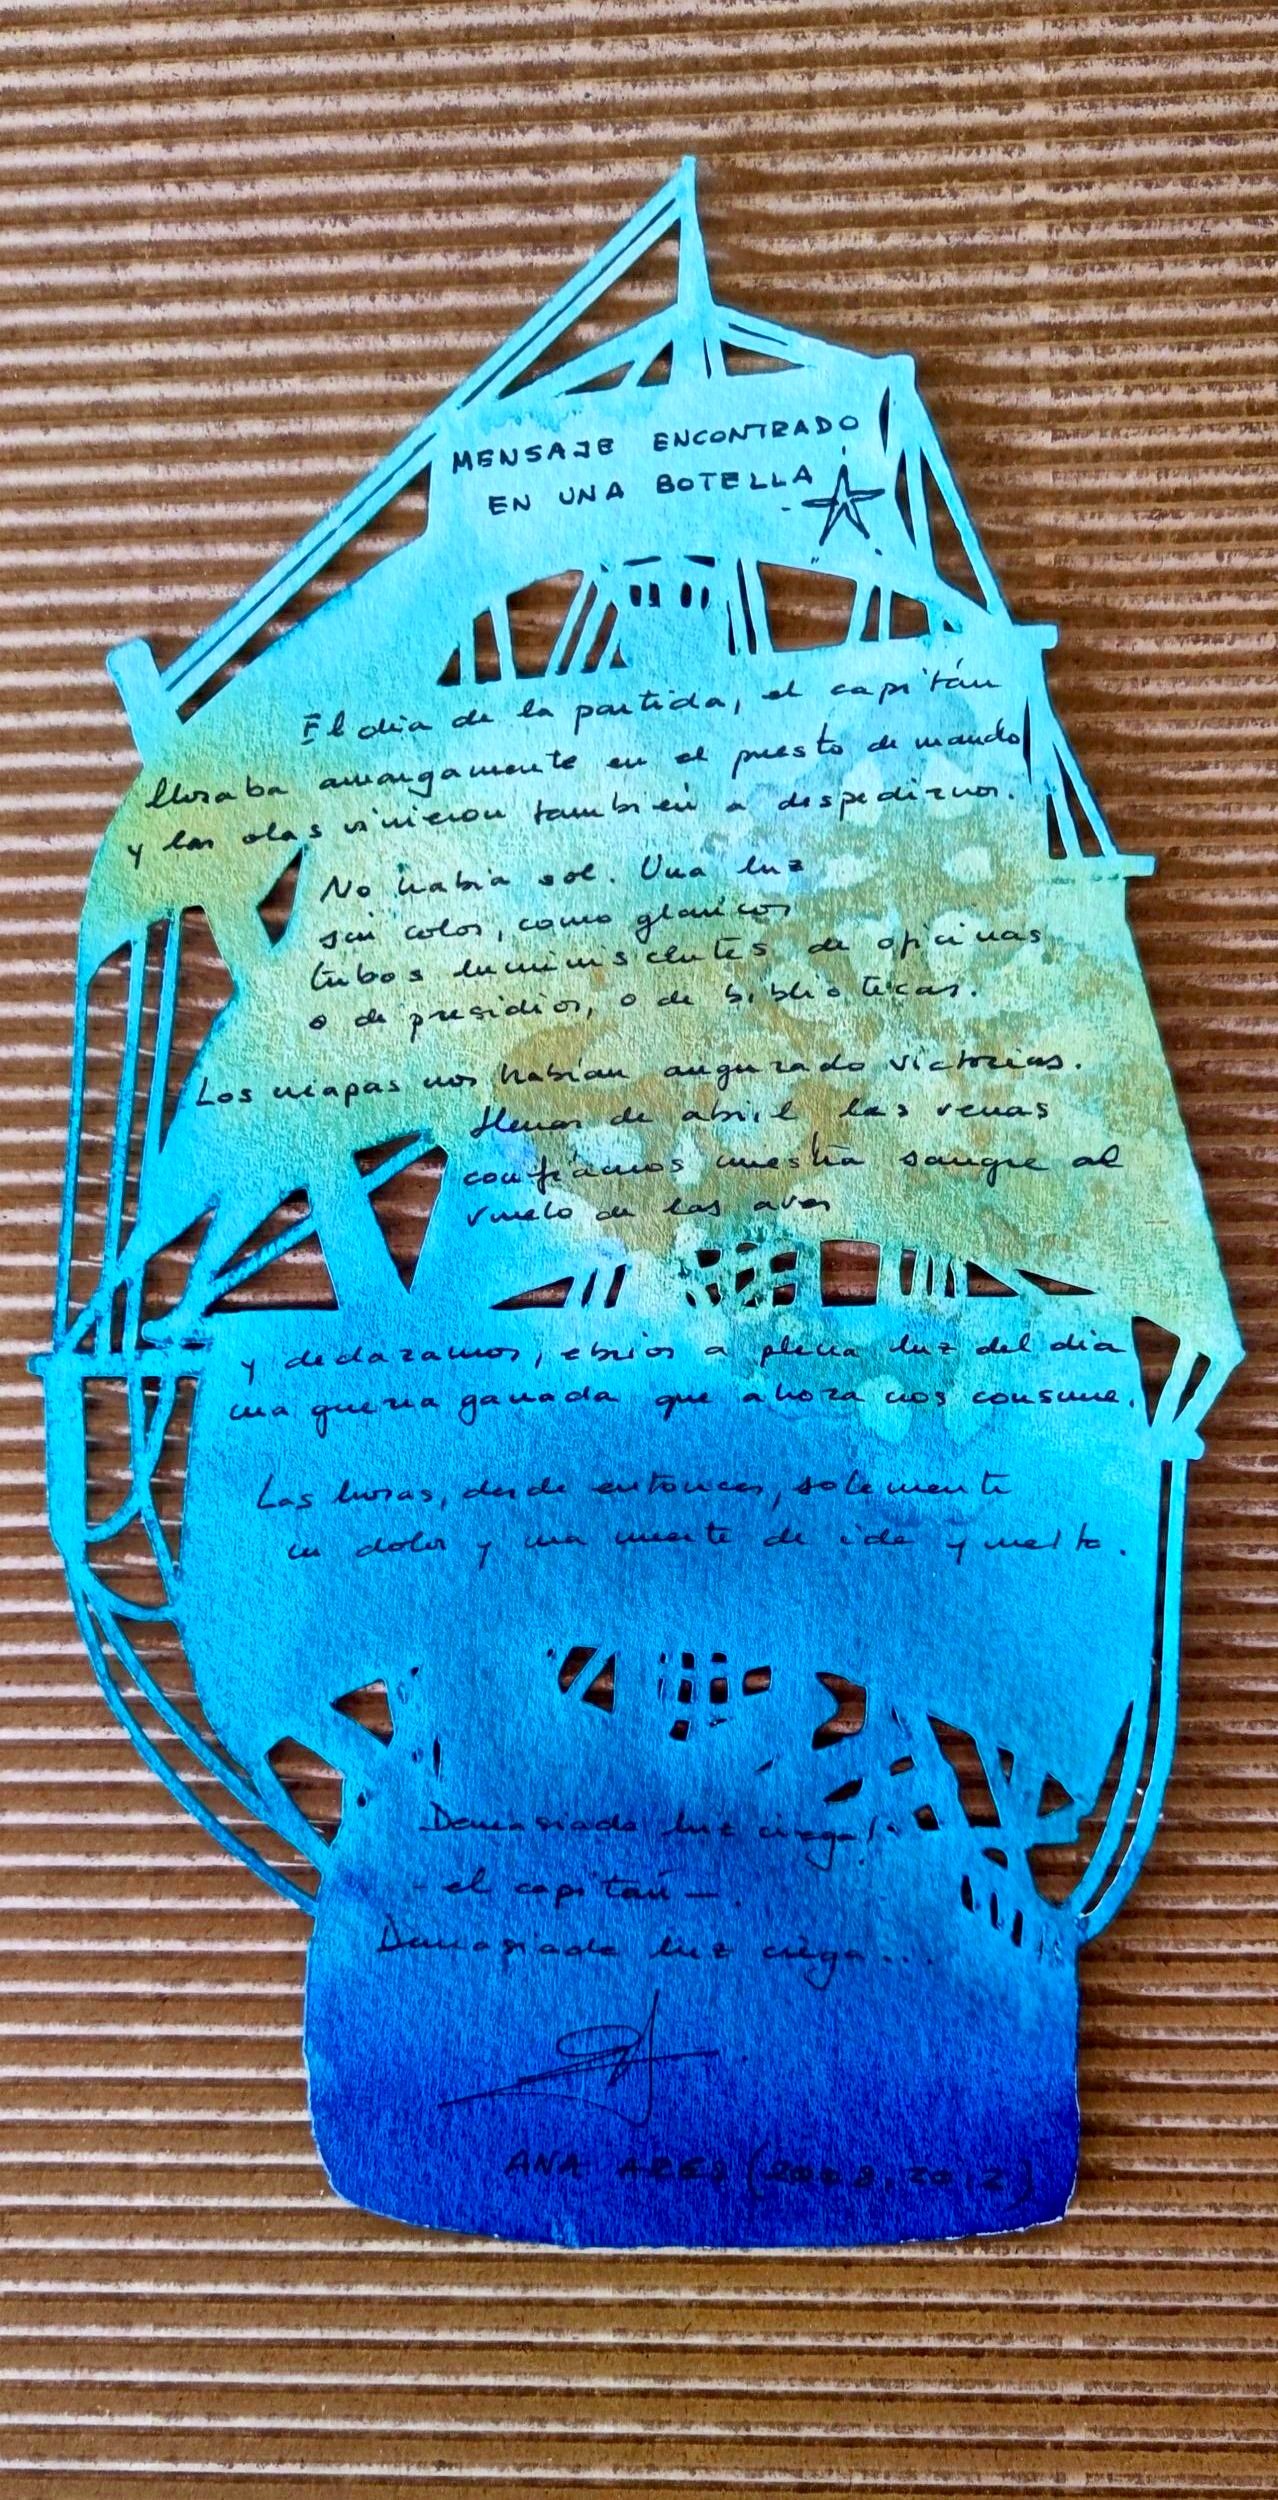 MENSAJE ENCONTRADO
EN UNA BOTELLA
El día de la partida, el capitán
lloraba amargamente en el puesto de mando
y las olas vinieron también a despedirnos.
No había sol. Una luz
sin color, como glaucos
tubos luminiscentes de oficinas
o de presidios, o de bibliotecas.
Los mapas nos habían augurado victorias.
Llenas de abril las venas
confiamos nuestra sangre al
vuelo de las aves
y declaramos, ebrios a plena luz del día
una guerra ganada que ahora nos consume.
Las horas, desde entonces, solamente
un dolor y una muerte de ida y vuelta.
Demasiada luz ciega!
- el capitán -.
Demasiada luz ciega...
ANA ARES (2012)